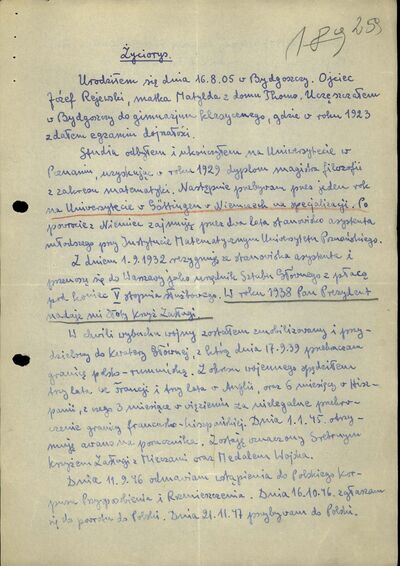 189 259
Życiorys.
Urodziłem się dnia 16.8.05 w Bydgoszczy. Ojciec
Józef Rejewski, matka Matylda z domu Thoms. Uczęszczałem
w Bydgoszczy do gimnazjum klasycznego, gdzie w roku 1923
zdałem egzamin dojrzałości.
Studia odbyłem i ukończyłem na Uniwersytecie w
Poznaniu, uzyskując w roku 1929 dyplom magistra filozofii
z zakresu matematyki. Następnie przebywam przez jeden rok
na Uniwersytecie w Göttingen w Niemczech na specjalizacji. Po
powrocie z Niemiec zajmuję przez dwa lata stanowisko asystenta
młodszego przy Instytucie Matematycznym Uniwersytetu Poznańskiego.
Z dniem 1.9.1932 rezygnuję ze stanowiska asystenta i
przenoszę się do Warszawy jako urzędnik Sztabu Głównego z płacą
pod koniec V stopnia służbowego. W roku 1938 Pan Prezydent
nadaje mi Złoty Krzyż Zasługi.
W chwili wybuchu wojny zostałem zmobilizowany i przy-
dzielony do Kwatery Głównej, z którą dnia 17.9.39 przekraczam
granicę polsko-rumuńską. Z okresu wojennego spędziłem
trzy lata we Francji i trzy lata w Anglii, oraz 6 miesięcy w Hisz-
panii, z czego 3 miesiące w więzieniu za nielegalne przekro-
czenie granicy francusko-hiszpańskiej. Dnia 1.1.45 otrzy-
muję awans na porucznika. Zostaję oznaczony Srebrnym
Krzyżem Zasługi z Mieczami oraz Medalem Wojska.
Dnia 11.9.46 odmawiam wstąpienia do Polskiego Kor-
pusu Przysposobienia i Rozmieszczenia. Dnia 16.10.46 zgłaszam
się do powrotu do Polski. Dnia 21.11.47 przybywam do Polski.